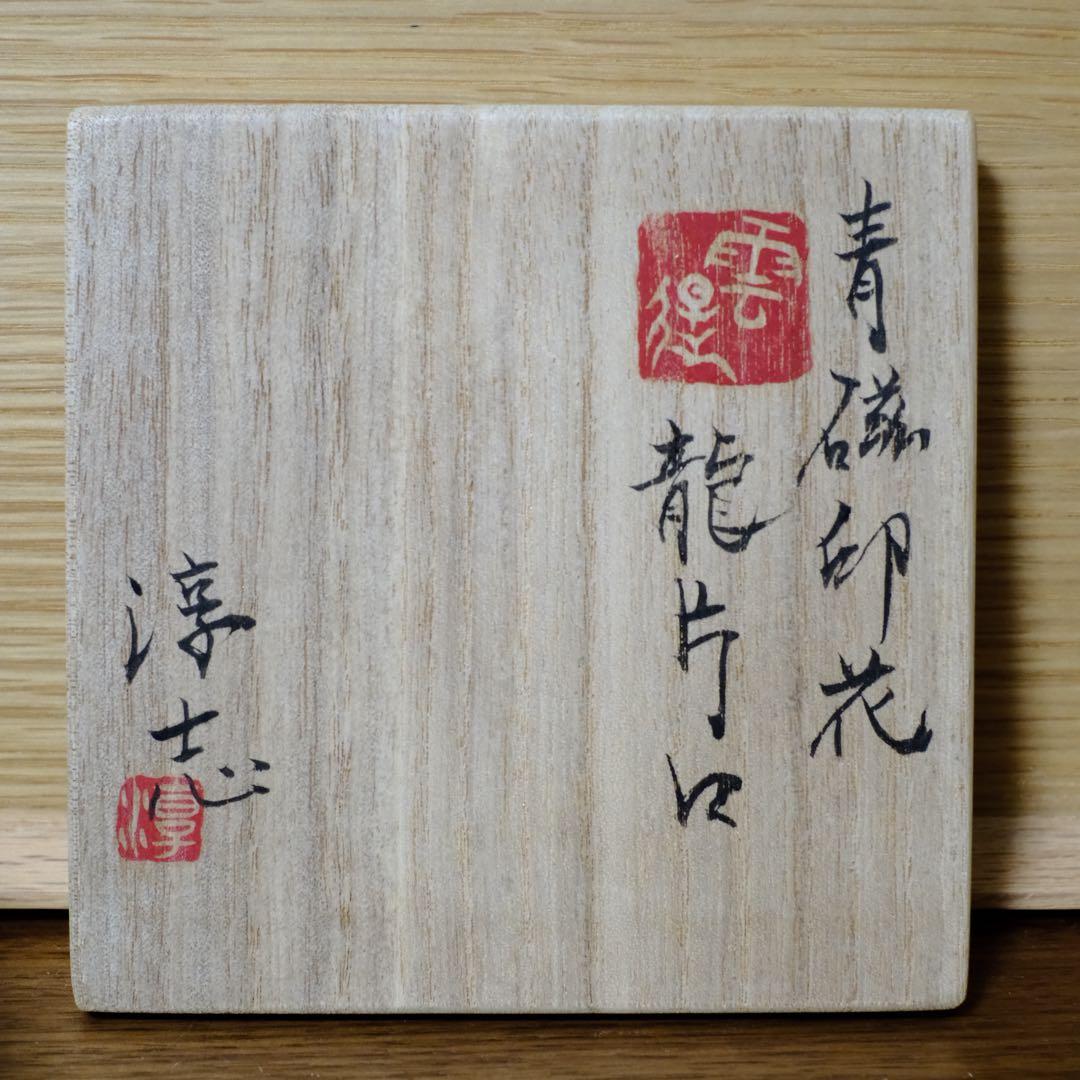 青磁印花
龍片口
淳志
淳